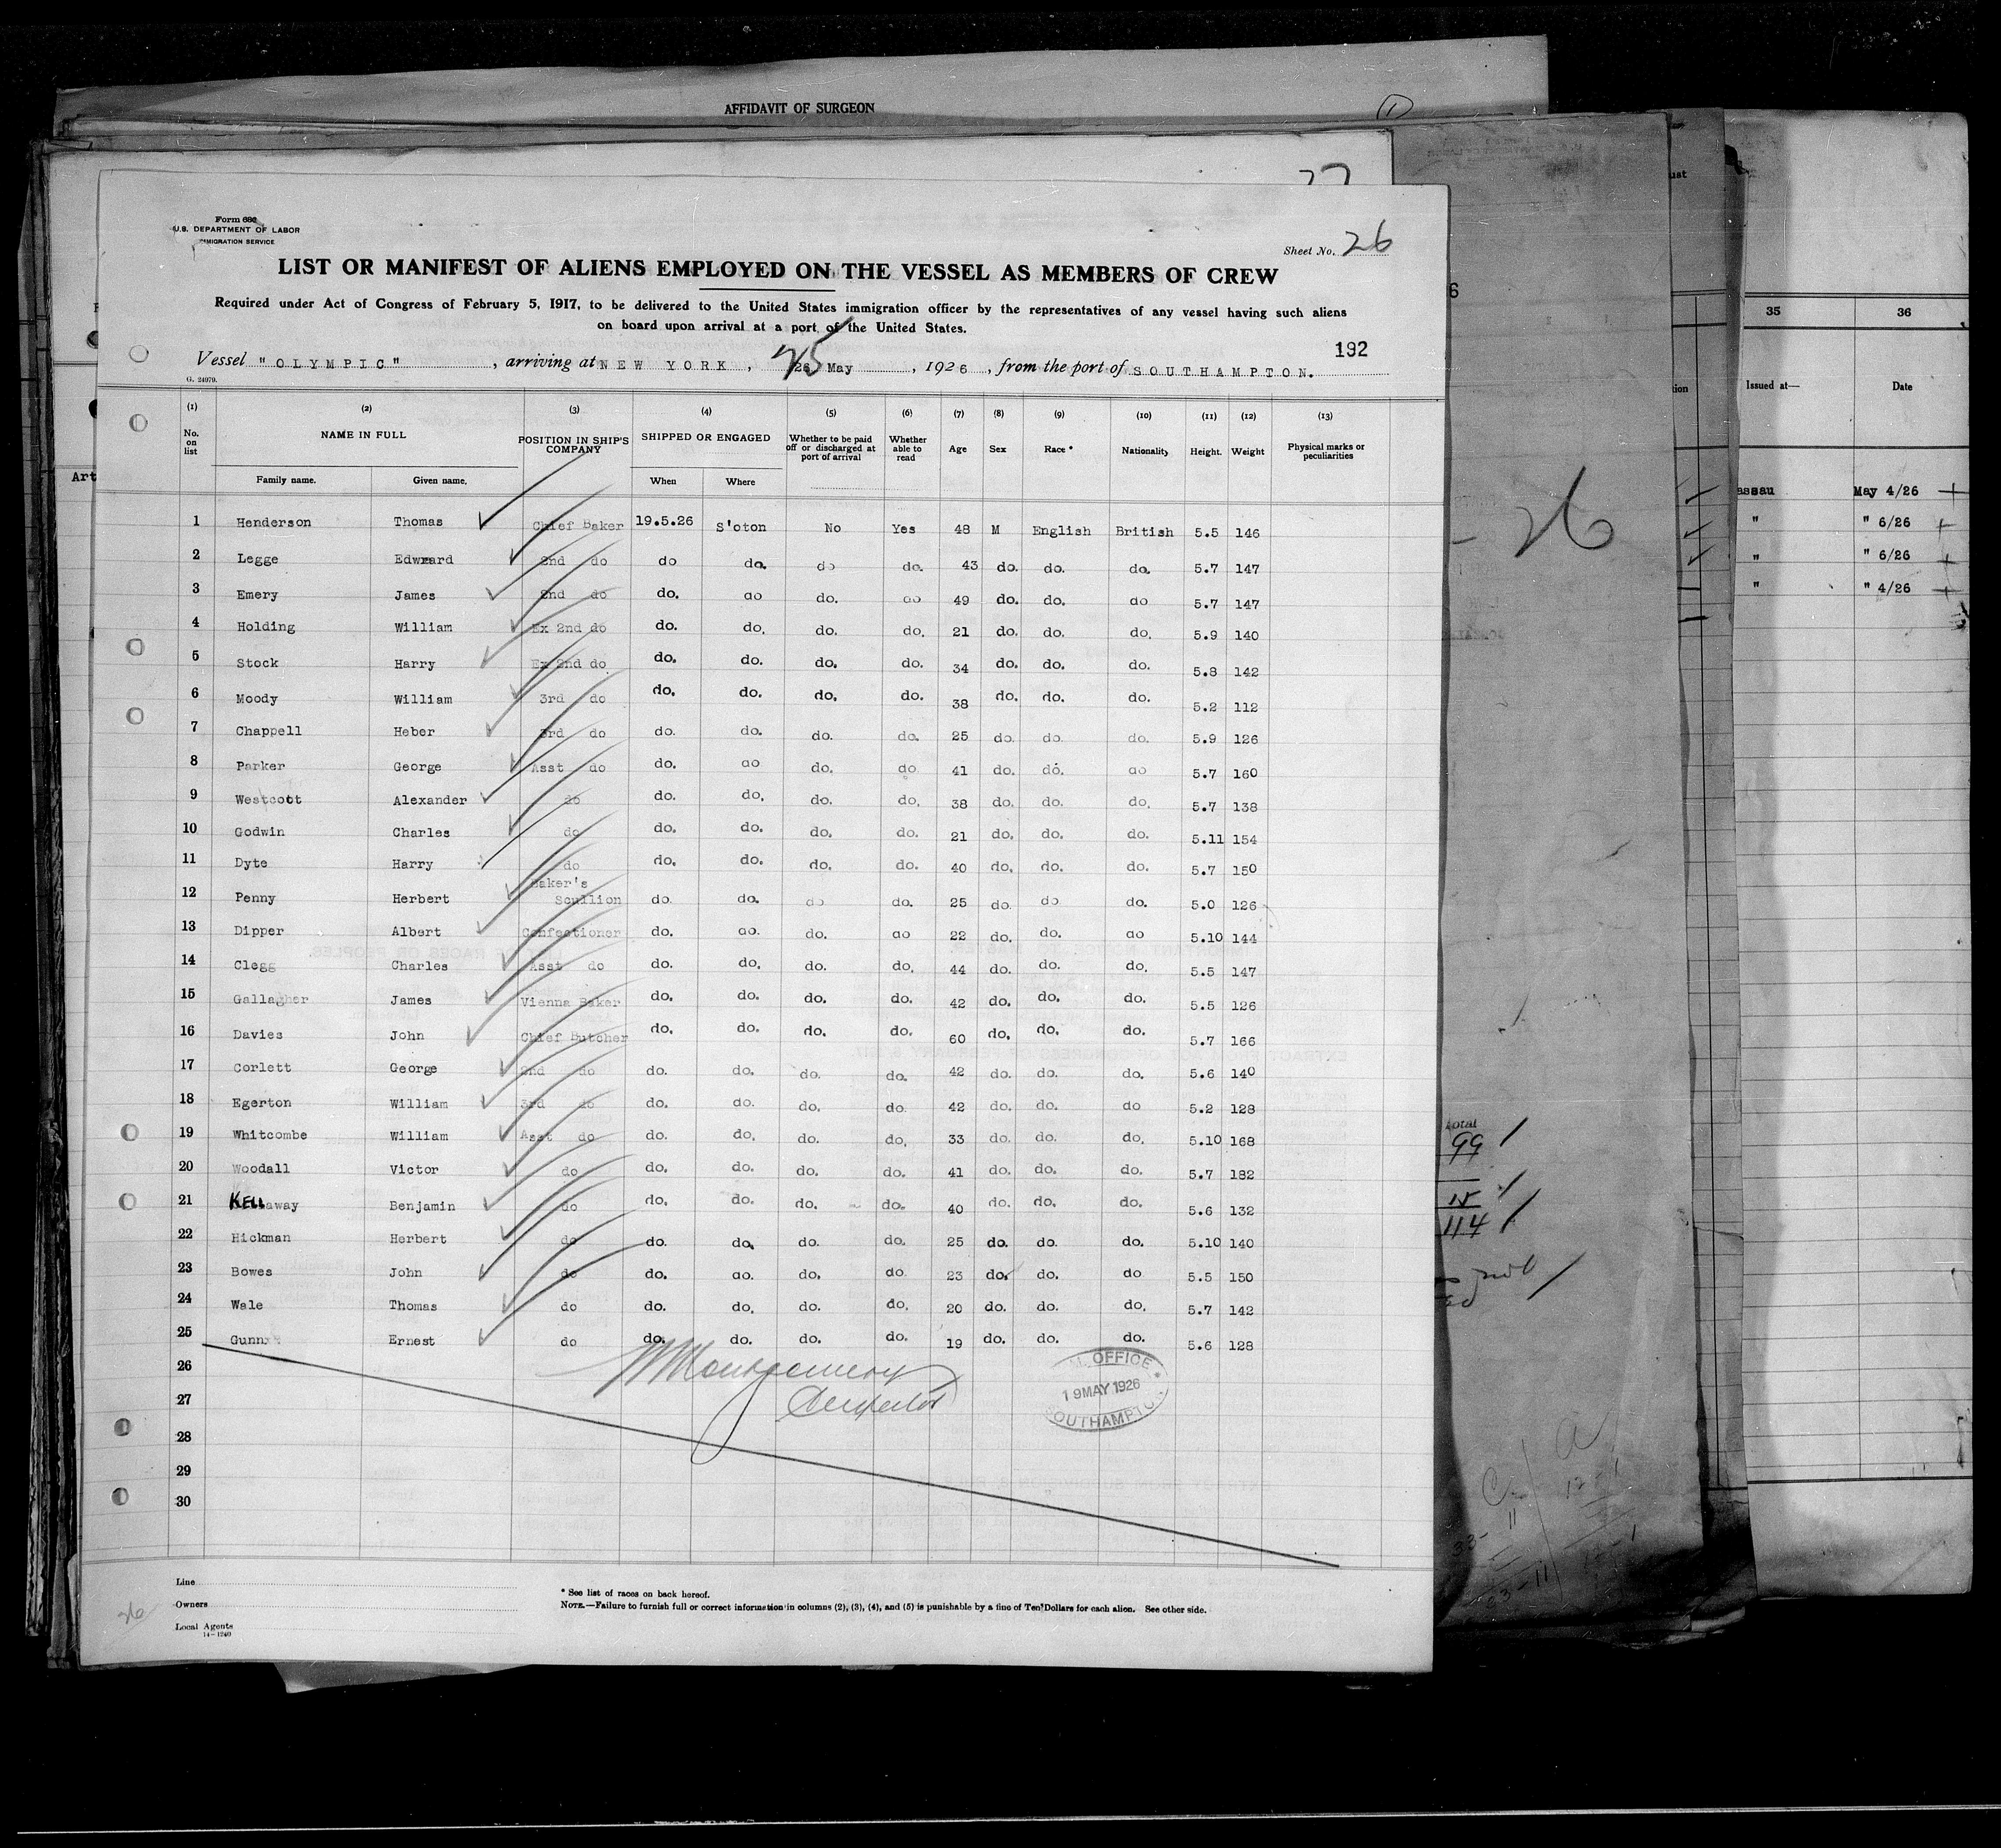 AFFIDAVIT OF SURGEON
1
27
Form 680
U.S. DEPARTMENT OF LABOR
IMMIGRATION SERVICE
Sheet No. 26
LIST OR MANIFEST OF ALIENS EMPLOYED ON THE VESSEL AS MEMBERS OF CREW
Required under Act of Congress of February 5, 1917, to be delivered to the United States immigration officer by the representatives of any vessel having such aliens
on board upon arrival at a port of the United States.
192
Vessel "OLYMPIC" , arriving at NEW YORK , 26 25 May , 1926 , from the port of SOUTHAMPTON.
G. 24979.
(1) (2) (3) (4) (5) (6) (7) (8) (9) (10) (11) (12) (13)
No. on list NAME IN FULL POSITION IN SHIP'S COMPANY SHIPPED OR ENGAGED Whether to be paid off or discharged at port of arrival Whether able to read Age Sex Race * Nationality Height. Weight Physical marks or peculiarities
Family name. Given name. When Where
1 Henderson Thomas Chief Baker 19.5.26 S'oton No Yes 48 M English British 5.5 146
2 Legge Edwward 2nd do do do. do do. 43 do. do. do. 5.7 147
3 Emery James 2nd do do. do do. do 49 do. do. do 5.7 147
4 Holding William Ex 2nd do do. do. do. do. 21 do. do. do. 5.9 140
5 Stock Harry Ex 2nd do do. do. do. do. 34 do. do. do. 5.8 142
6 Moody William 3rd do do. do. do. do. 38 do. do. do. 5.2 112
7 Chappell Heber 3rd do do. do. do. do. 25 do. do. do. 5.9 126
8 Parker George Asst do do. do do. do 41 do. do. do 5.7 160
9 Westcott Alexander do do. do. do. do. 38 do. do. do. 5.7 138
10 Godwin Charles do do. do. do. do. 21 do. do. do. 5.11 154
11 Dyte Harry do do. do. do. do. 40 do. do. do. 5.7 150
12 Penny Herbert Baker's Scullion do. do. do do. 25 do. do do. 5.0 126
13 Dipper Albert Confectioner do. do. do. do 22 do. do. do 5.10 144
14 Clegg Charles Asst do do. do. do. do. 44 do. do. do. 5.5 147
15 Gallagher James Vienna Baker do. do. do. do. 42 do. do. do. 5.5 126
16 Davies John Chief Butcher do. do. do. do. 60 do. do. do. 5.7 166
17 Corlett George 2nd do do. do. do. do. 42 do. do. do. 5.6 140
18 Egerton William 3rd do do. do. do. do. 42 do. do. do 5.2 128
19 Whitcombe William Asst do do. do. do. do. 33 do. do. do. 5.10 168
20 Woodall Victor do do. do. do. do. 41 do. do. do. 5.7 182
21 KELLaway Benjamin do do. do. do. do. 40 do. do. do. 5.6 132
22 Hickman Herbert do do. do. do. do. 25 do. do. do. 5.10 140
23 Bowes John do do. do. do. do 23 do. do. do 5.5 150
24 Wale Thomas do do. do. do. do. 20 do. do. do. 5.7 142
25 Gunn Ernest do do. do. do. do. 19 do. do. do. 5.6 128
26
27
28
29
30
OFFICE
19 MAY 1926
SOUTHAMPTON
Line
Owners
Local Agents
14-1240
26
* See list of races on back hereof.
NOTE.—Failure to furnish full or correct information in columns (2), (3), (4), and (5) is punishable by a fine of Ten Dollars for each alien. See other side.
6
26
Total
99
15
114
35 36
Issued at— Date
assau May 4/26
" " 6/26
" " 6/26
" " 4/26